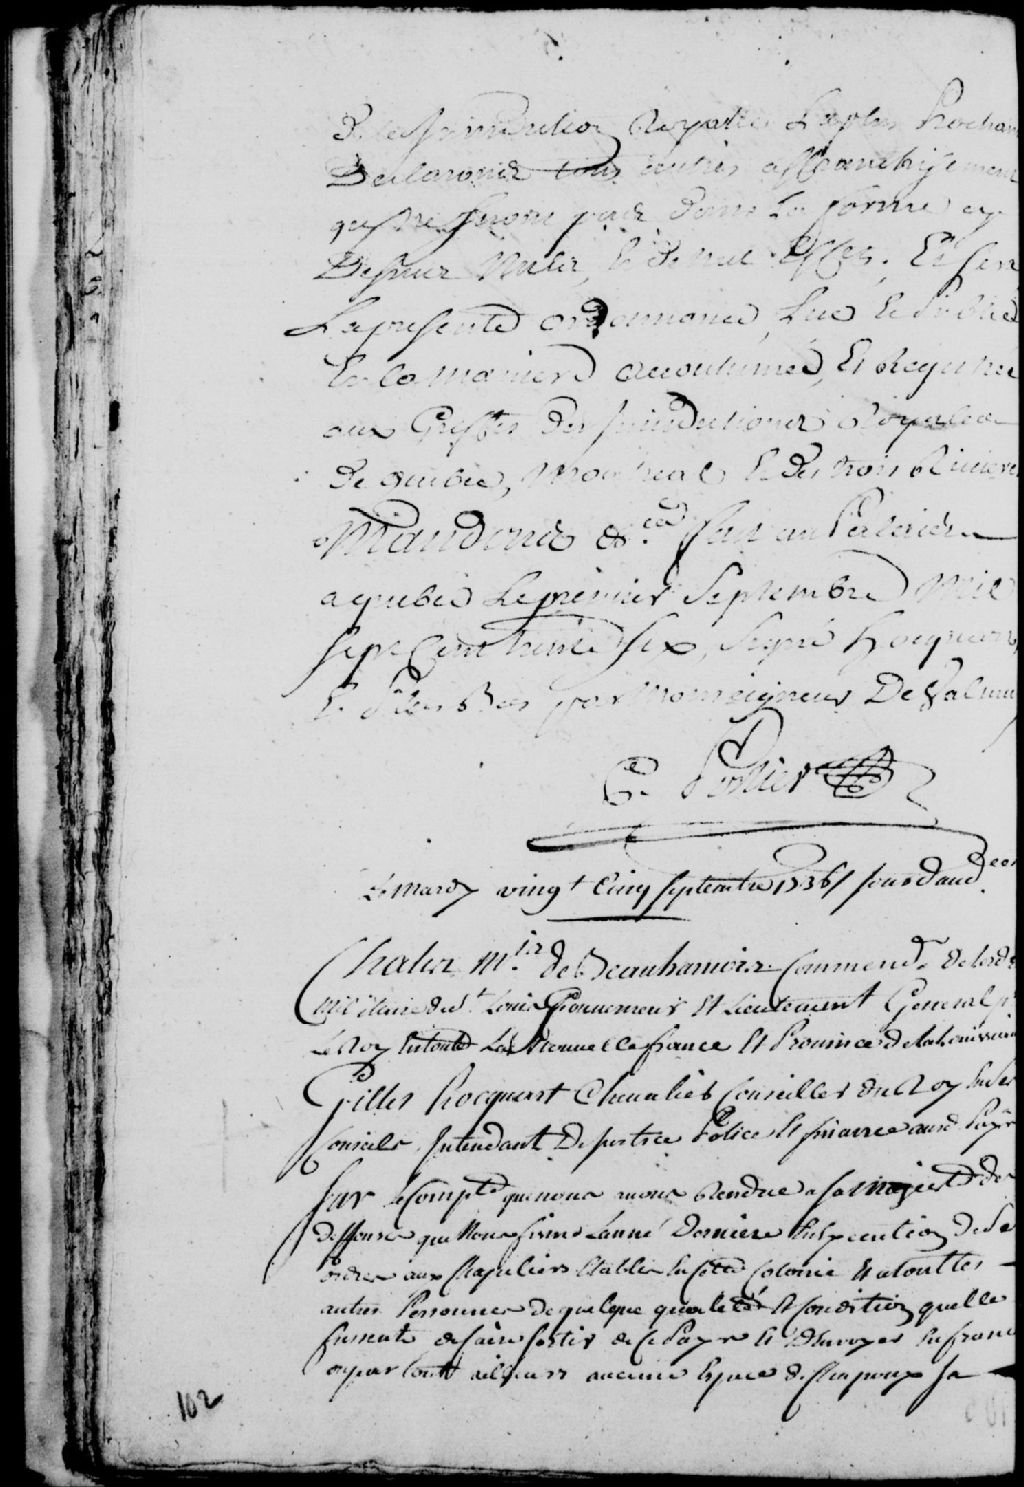 De la Jurisdiction Royalle La plus Prochaine
Declarons tous autres affranchissements
qui ne seront pas dans la forme cy
Dessus Nuls, & de nul effet. Et sera
La presente ordonnance Lue & Publiée
En la maniere accoutumée, Et Registrée
aux Greffes des Jurisdictions Royales
De quebec, Montreal & des trois Rivieres
Mandons &.ca fait en Palais
a quebec Le premier Septembre Mil
sept Cent trente six, Signé hocquart,
& Plus Bas par Monseigneur De Valmur
Le mardy vingt Cinq septembre 1736 / Jour daud.ce
Charles M.is de Beauharnois Command.r de lordre
militaire de S.t Louis Gouverneur Et Lieutenant General p.r
Le Roy En toutte La Nouvelle france Et Province de la Louissianne
Gilles hocquart Chevalier Conseiller du Roy En ses
Conseils, Intendant De justice Police Et finance aud. Pays
Sur le Compte que nous avons Rendue a sa majesté des
deffenses que Nous fismes Lanné Derniere En Execution De Ses
ordres aux Chapeliers Etablis En Cette Colonie Et a touttes
autres Personnes de quelque qualité Et Condition quelle
fussent de faire sortir de Ce Pays Et D'Envoyer En france
ou par tout ailleurs aucune Espece de Chapeaux Sa
102